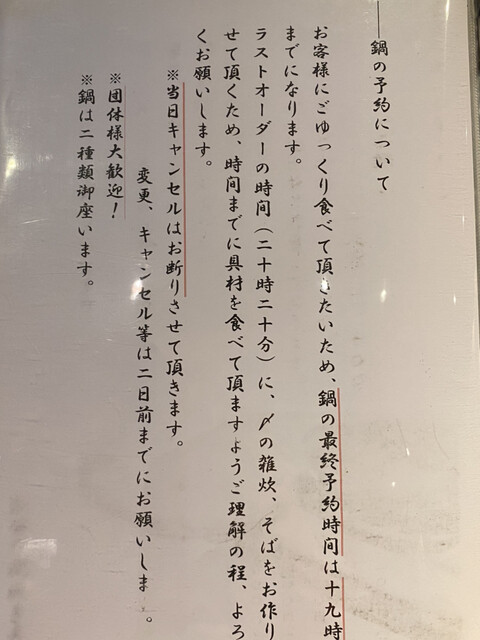 鍋の予約について
お客様にごゆっくり食べて頂きたいため、鍋の最終予約時間は十九時
までになります。
ラストオーダーの時間(二十時二十分)に、〆の雑炊、そばをお作り
せて頂くため、時間までに具材を食べて頂ますようご理解の程、よろ
くお願いします。
※当日キャンセルはお断りさせて頂きます。
変更、キャンセル等は二日前までにお願いしま 。
※団体様大歓迎!
※鍋は二種類御座います。